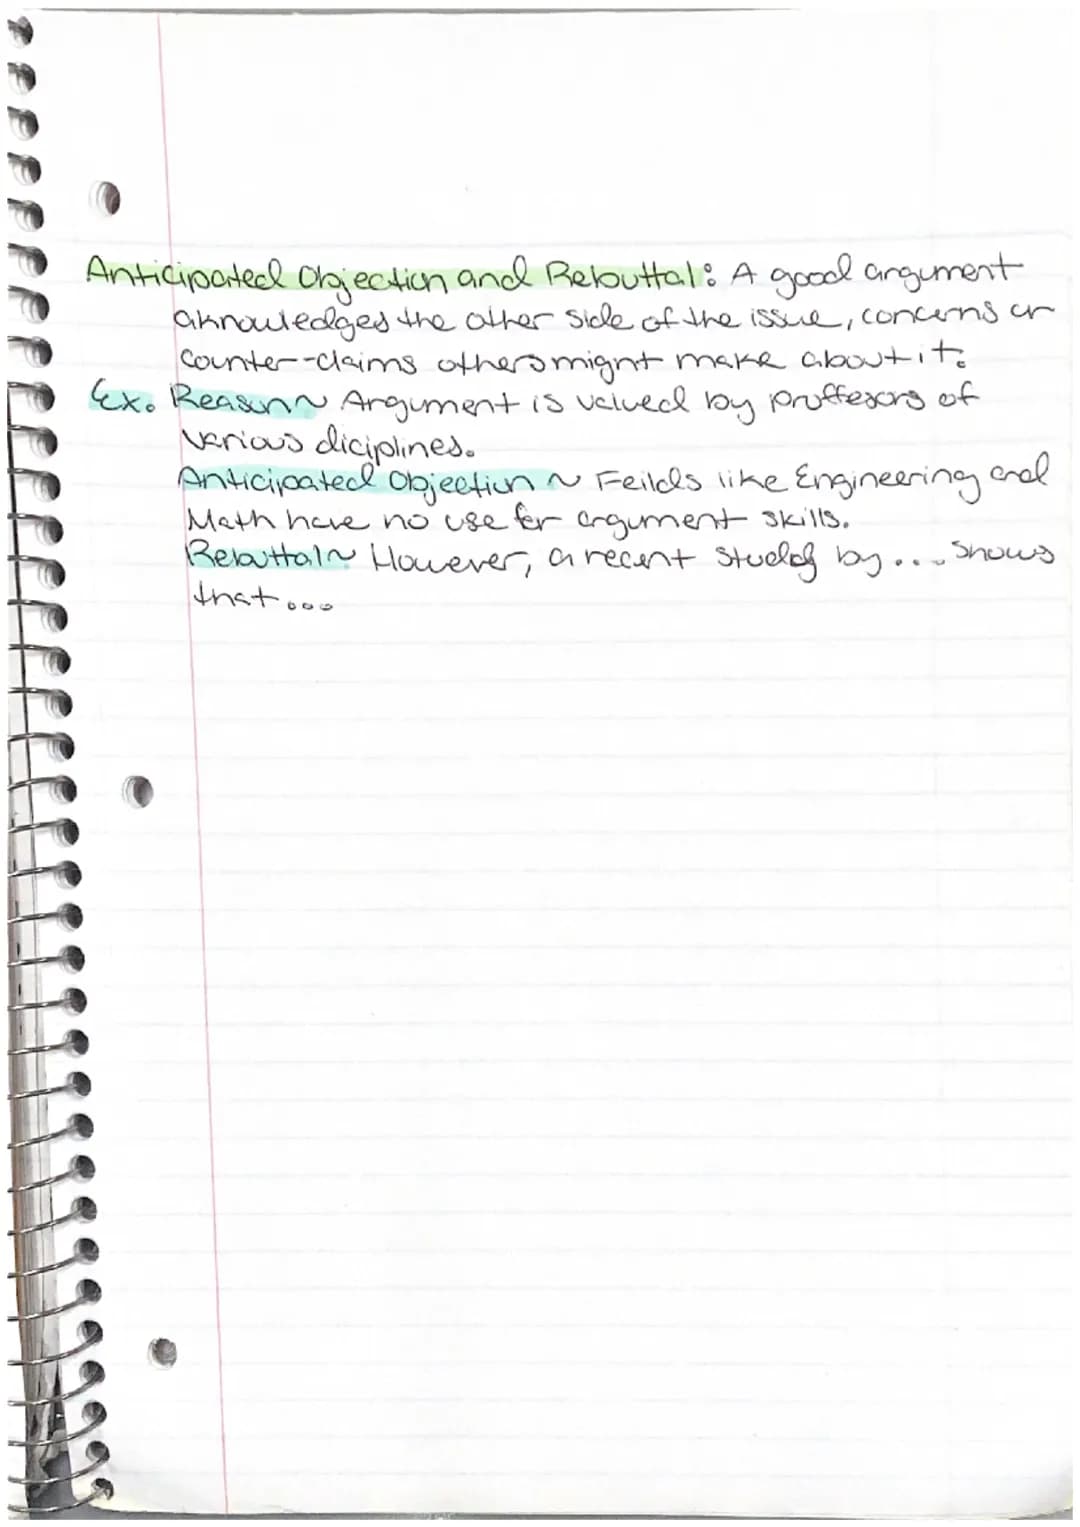 Anticipated Objection and Rebuttal: A good argument
aknowledges the other side of the issue, concerns or
counter-claims others might make about it.
Ex. Reason~ Argument is valued by proffesors of
various diciplines.
Anticipated Objection ~ Feilds like Engineering and
Math have no use for argument skills.
Rebuttal~ However, a recent study by.... shows
that...